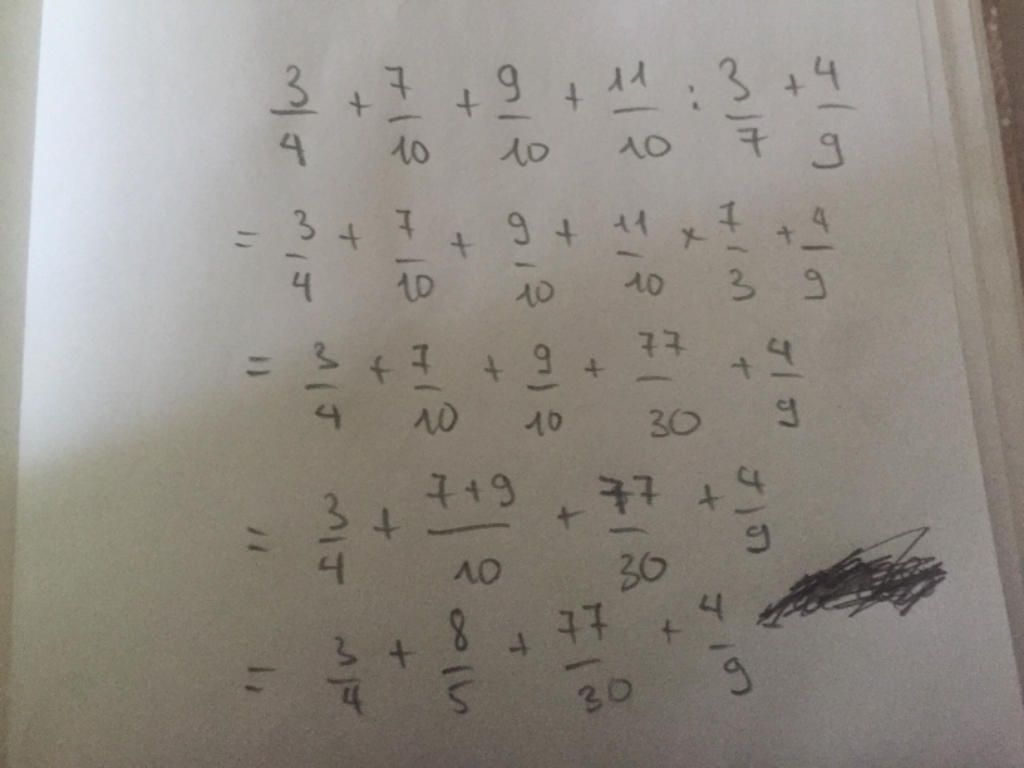 3/4 + 7/10 + 9/10 + 11/10 : 3/7 + 4/9
= 3/4 + 7/10 + 9/10 + 11/10 × 7/3 + 4/9
= 3/4 + 7/10 + 9/10 + 77/30 + 4/9
= 3/4 + 7+9/10 + 77/30 + 4/9
= 3/4 + 8/5 + 77/30 + 4/9